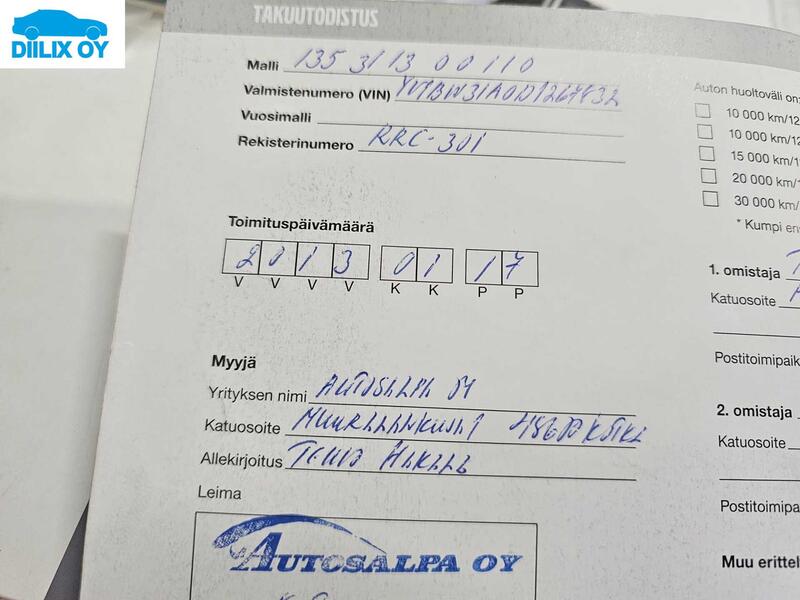 DIILIX OY
TAKUUTODISTUS
Malli 135 31 13 00110
Valmistenumero (VIN)
Vuosimalli
Rekisterinumero RRC-301
Toimituspäivämäärä
2013 01 17
V V V V K K P P
Myyjä
Yrityksen nimi
Katuosoite
Allekirjoitus
Leima
AUTOSALPA OY
Auton huoltoväli on:
10 000 km/12
10 000 km/12
15 000 km/1
20 000 km/1
30 000 km/
* Kumpi en
1. omistaja
Katuosoite
Postitoimipaik
2. omistaja
Katuosoite
Postitoimipa
Muu erittel